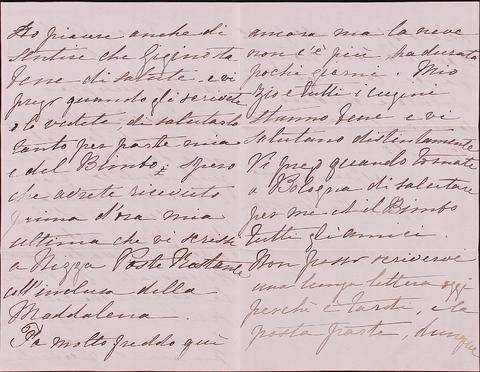 Ho piacere anche di
sentire che Gigino sta
bene di salute. e vi
prego quando gli scrivete
o lo vedete, di salutarlo
tanto per parte mia
e del Bimbo; spero
che avrete ricevuto
prima d'ora mia
ultima che vi scrissi
a Nizza Poste Restante
coll'inclusa della
Maddalena.
Fa molto freddo qui
ancora ma la neve
non c'è più, ha durato
pochi giorni. Mio
Zio e tutti i cugini
stanno bene e vi
salutano distintamente
Vi prego quando tornate
a Bologna di salutare
per me ed il Bimbo
tutti gli amici.
Non posso scrivervi
una lunga lettera oggi
perchè è tardi, e la
posta parte, dunque